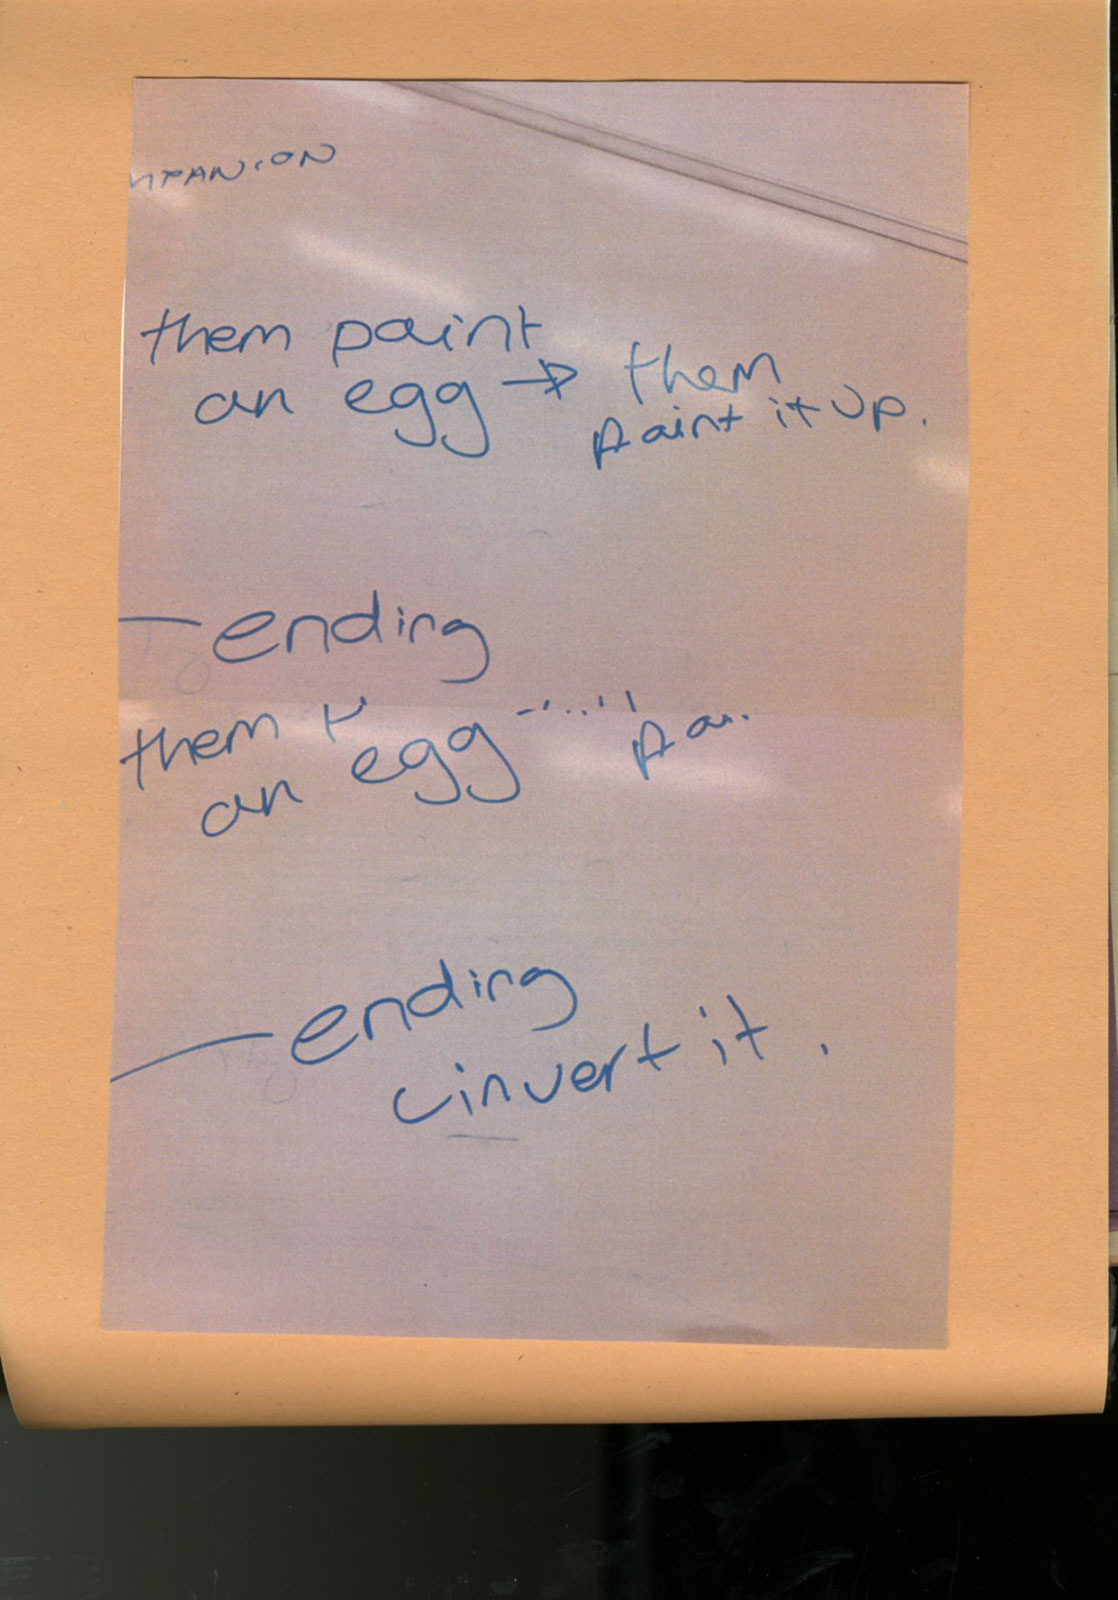 MPANION
them paint
an egg → them
paint it up.
ending
them
an egg
ending
invert it.